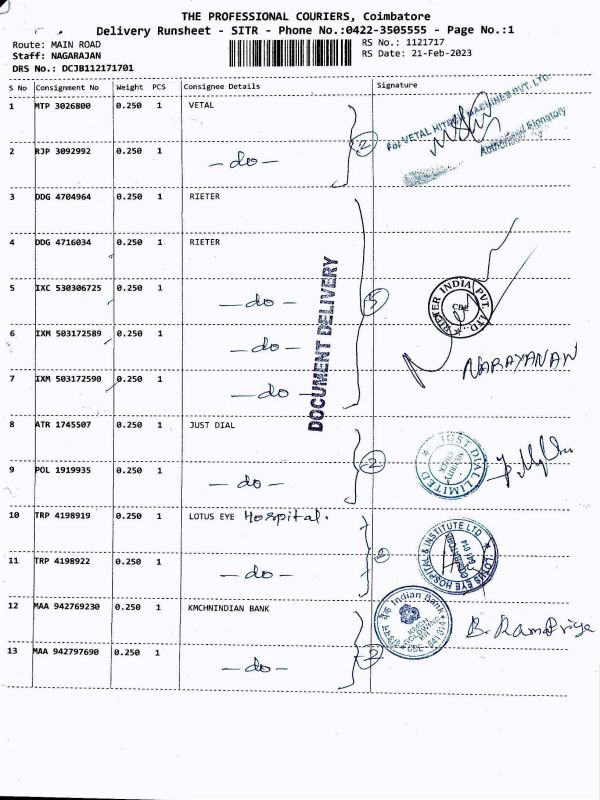 THE PROFESSIONAL COURIERS, Coimbatore
Delivery Runsheet - SITR - Phone No.:0422-3505555 - Page No.:1
Route: MAIN ROAD
RS No.: 1121717
Staff: NAGARAJAN
RS Date: 21-Feb-2023
DRS No.: DCJB112171701
S No Consignment No Weight PCS Consignee Details Signature
1 MTP 3026800 0.250 1 VETAL
For VETAL HITECH MACHINES PVT. LTD.
Authorised Signatory
2 RJP 3092992 0.250 1 -do- 2
3 DDG 4704964 0.250 1 RIETER
4 DDG 4716034 0.250 1 RIETER
5 IXC 530306725 0.250 1 -do- 5
RIETER INDIA PVT. LTD. CBE
6 IXM 503172589 0.250 1 -do-
NARAYANAN
7 IXM 503172590 0.250 1 -do-
DOCUMENT DELIVERY
8 ATR 1745507 0.250 1 JUST DIAL
JUST DIAL LIMITED
9 POL 1919935 0.250 1 -do- 2
10 TRP 4198919 0.250 1 LOTUS EYE Hospital.
LOTUS EYE HOSPITAL & INSTITUTE LTD
COIMBATORE 641 014
11 TRP 4198922 0.250 1 -do- 2
12 MAA 942769230 0.250 1 KMCHNINDIAN BANK
Indian Bank
B. RamaPriya
13 MAA 942797690 0.250 1 -do- 2